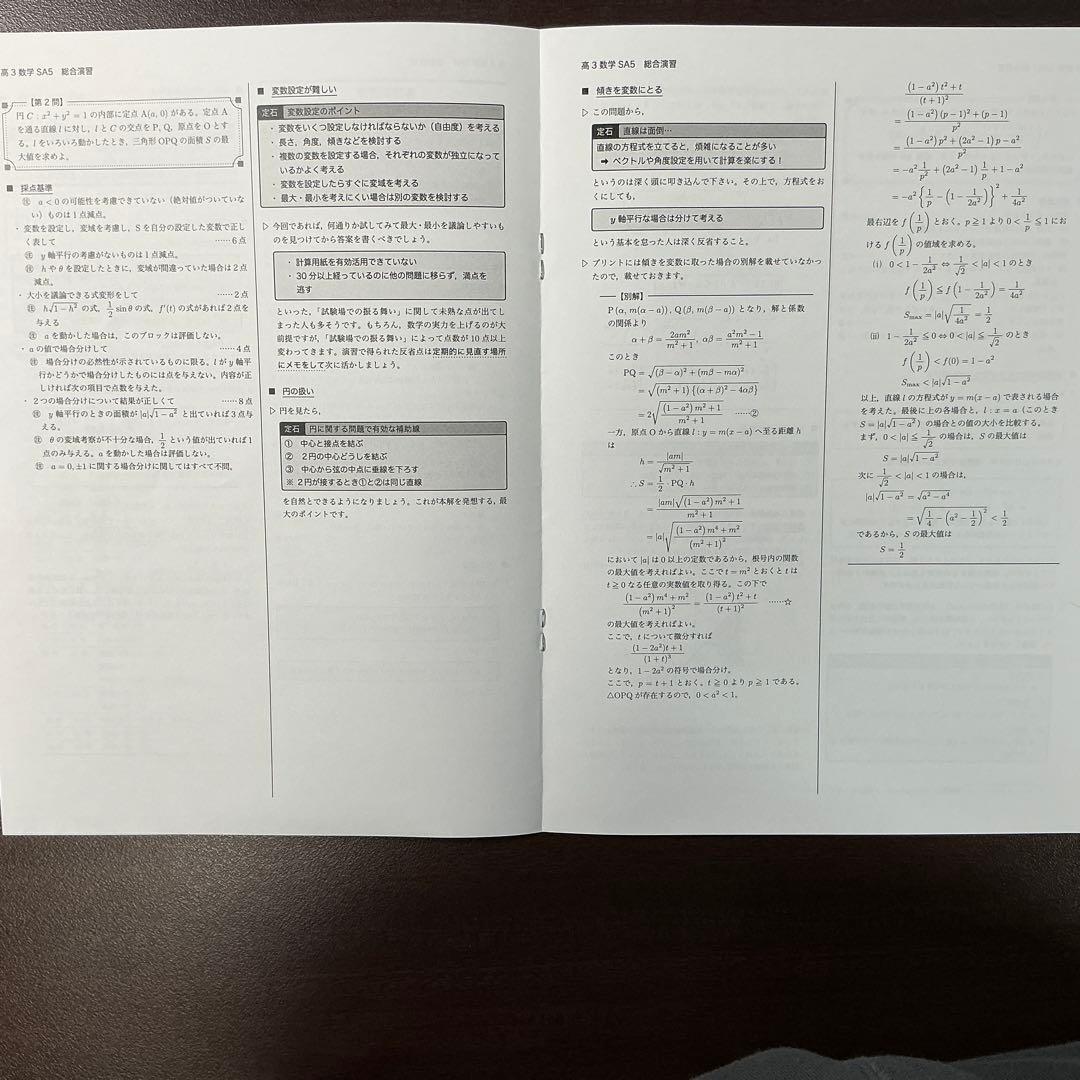 高3数学 SA5 総合演習
【第2問】
円 C : x² + y² = 1 の内部に定点 A(a, 0) がある。定点 A
を通る直線 l に対し，l と C の交点を P, Q，原点を O とす
る。l をいろいろ動かしたとき，三角形 OPQ の面積 S の最
大値を求めよ。
■ 採点基準
㊟ a < 0 の可能性を考慮できていない（絶対値がついていな
い）ものは1点減点。
・変数を設定し，変域を考慮し，S を自分の設定した変数で正し
く表して ……6点
㊟ y 軸平行の考慮がないものは1点減点。
㊟ h や θ を設定したときに，変域が間違っていた場合は2点
減点。
・大小を議論できる式変形をして ……2点
㊟ h√(1−h²) の式，1/2 sin θ の式，f′(t) の式があれば2点を
与える
㊟ a を動かした場合は，このブロックは評価しない。
・a の値で場合分けして ……4点
㊟ 場合分けの必然性が示されているものに限る。l が y 軸平
行かどうかで場合分けしたものには点を与えない。内容が正
しければ次の項目で点数を与えた。
・2つの場合分けについて結果が正しくて ……8点
㊟ y 軸平行のときの面積が |a|√(1−a²) と出ていれば3点与
える。
㊟ θ の変域考察が不十分な場合，1/2 という値が出ていれば1
点のみ与える。a を動かした場合は評価しない。
㊟ a = 0, ±1 に関する場合分けに関してはすべて不問。
■ 変数設定が難しい
定石 変数設定のポイント
・変数をいくつ設定しなければならないか（自由度）を考える
・長さ，角度，傾きなどを検討する
・複数の変数を設定する場合，それぞれの変数が独立になって
いるかよく考える
・変数を設定したらすぐに変域を考える
・最大・最小を考えにくい場合は別の変数を検討する
▷ 今回であれば，何通りか試してみて最大・最小を議論しやすいも
のを見つけてから答案を書くべきでしょう。
・計算用紙を有効活用できていない
・30分以上経っているのに他の問題に移らず，満点を
逃す
といった，「試験場での振る舞い」に関して未熟な点が出てし
まった人も多そうです。もちろん，数学の実力を上げるのが大
前提ですが，「試験場での振る舞い」によって点数が10点以上
変わってきます。演習で得られた反省点は定期的に見直す場所
にメモをして次に活かしましょう。
■ 円の扱い
▷ 円を見たら，
定石 円に関する問題で有効な補助線
① 中心と接点を結ぶ
② 2円の中心どうしを結ぶ
③ 中心から弦の中点に垂線を下ろす
※ 2円が接するとき①と②は同じ直線
を自然とできるようになりましょう。これが本解を発想する，最
大のポイントです。
高3数学 SA5 総合演習
■ 傾きを変数にとる
▷ この問題から，
定石 直線は面倒…
直線の方程式を立てると，煩雑になることが多い
➡ ベクトルや角度設定を用いて計算を楽にする！
というのは深く頭に叩き込んで下さい。その上で，方程式をお
くにしても，
y 軸平行な場合は分けて考える
という基本を怠った人は深く反省すること。
▷ プリントには傾きを変数に取った場合の別解を載せていなかっ
たので，載せておきます。
【別解】
P(α, m(α−a))，Q(β, m(β−a)) となり，解と係数
の関係より
α + β = 2am²/(m²+1), αβ = (a²m²−1)/(m²+1)
このとき
PQ = √((β−α)² + (mβ−mα)²)
= √((m²+1){(α+β)² − 4αβ})
= 2√(((1−a²)m²+1)/(m²+1)) ……②
一方，原点 O から直線 l : y = m(x−a) へ至る距離 h
は
h = |am|/√(m²+1)
∴ S = 1/2 · PQ · h
= |am|√((1−a²)m²+1)/(m²+1)
= |a|√(((1−a²)m⁴+m²)/(m²+1)²)
において |a| は 0 以上の定数であるから，根号内の関数
の最大値を考えればよい。ここで t = m² とおくと t は
t ≧ 0 なる任意の実数値を取り得る。この下で
((1−a²)m⁴+m²)/(m²+1)² = ((1−a²)t²+t)/(t+1)² ……☆
の最大値を考えればよい。
ここで，t について微分すれば
((1−2a²)t+1)/(1+t)³
となり，1−2a² の符号で場合分け。
ここで，p = t+1 とおく。t ≧ 0 より p ≧ 1 である。
△OPQ が存在するので，0 < a² < 1。
((1−a²)t²+t)/(t+1)²
= ((1−a²)(p−1)²+(p−1))/p²
= ((1−a²)p²+(2a²−1)p−a²)/p²
= −a² 1/p² + (2a²−1) 1/p + 1−a²
= −a²{1/p − (1 − 1/2a²)}² + 1/4a²
最右辺を f(1/p) とおく。p ≧ 1 より 0 < 1/p ≦ 1 にお
ける f(1/p) の値域を求める。
(i) 0 < 1 − 1/2a² ⇔ 1/√2 < |a| < 1 のとき
f(1/p) ≦ f(1 − 1/2a²) = 1/4a²
Smax = |a|√(1/4a²) = 1/2
(ii) 1 − 1/2a² ≦ 0 ⇔ 0 < |a| ≦ 1/√2 のとき
f(1/p) < f(0) = 1−a²
Smax < |a|√(1−a²)
以上，直線 l の方程式が y = m(x−a) で表される場合
を考えた。最後に上の各場合と，l : x = a（このとき
S = |a|√(1−a²)）の場合との値の大小を比較する。
まず，0 < |a| ≦ 1/√2 の場合は，S の最大値は
S = |a|√(1−a²)
次に 1/√2 < |a| < 1 の場合は，
|a|√(1−a²) = √(a²−a⁴)
= √(1/4 − (a² − 1/2)²) < 1/2
であるから，S の最大値は
S = 1/2